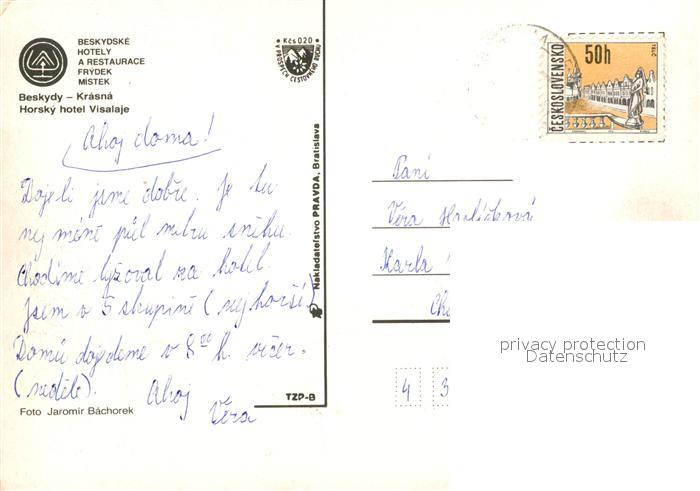 BESKYDSKÉ
HOTELY
A RESTAURACE
FRÝDEK
MÍSTEK
Beskydy – Krásná
Horský hotel Visalaje
Kčs 0,20
V PROSPĚCH CESTOVNÉHO RUCHU
Ahoj doma!
Dojeli jsme dobře. Je tu
nejméně půl metru sněhu.
Chodíme lyžovat za hotel.
Jsem v 5 skupině (nejhorší)
Domů dojedeme v 8⁰⁰ h. večer.
(neděle). Ahoj
Věra
Foto Jaromír Báchorek
TZP-B
Nakladateľstvo PRAVDA, Bratislava
ČESKOSLOVENSKO
50h
TELČ
Paní
Věra
Karla
4 3
privacy protection
Datenschutz